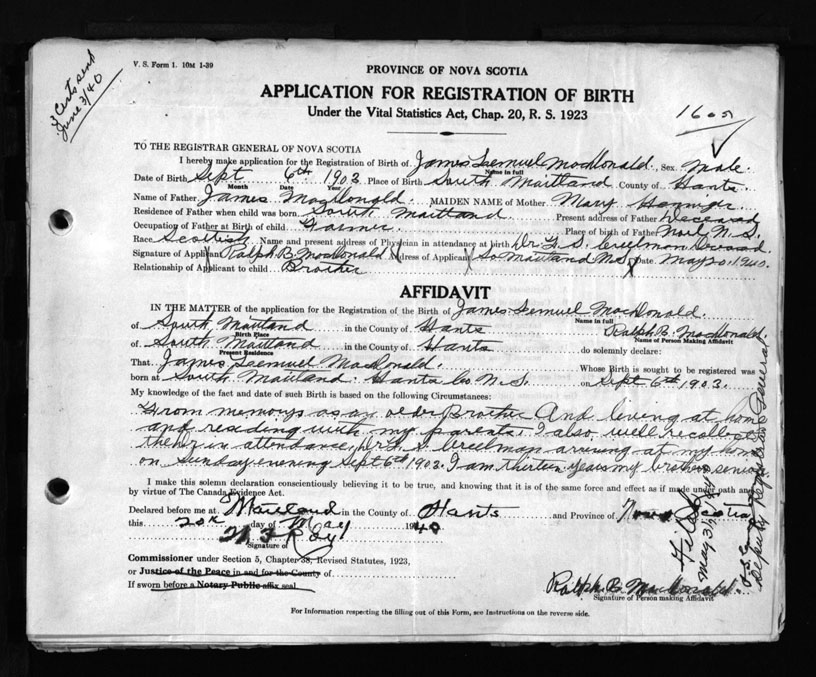 V. S. Form 1. 10M 1-39
2 Certs sent
June 3/40
PROVINCE OF NOVA SCOTIA
APPLICATION FOR REGISTRATION OF BIRTH
Under the Vital Statistics Act, Chap. 20, R. S. 1923
TO THE REGISTRAR GENERAL OF NOVA SCOTIA
I hereby make application for the Registration of Birth of James Lemuel MacDonald. Sex Male
Name in full
Date of Birth Sept 6th 1903 Place of Birth South Maitland County of Hants
Month Date Year
Name of Father James MacDonald MAIDEN NAME of Mother Mary
Residence of Father when child was born South Maitland Present address of Father Deceased
Occupation of Father at Birth of child Farmer Place of birth of Father Noel, N.S.
Race Scottish Name and present address of Physician in attendance at birth Dr. Creelman Deceased
Signature of Applicant Ralph B. MacDonald Address of Applicant So Maitland N.S. Date May 20. 1940.
Relationship of Applicant to child Brother
AFFIDAVIT
IN THE MATTER of the application for the Registration of the Birth of James Lemuel MacDonald.
Name in full
of South Maitland in the County of Hants Ralph B. MacDonald.
Birth Place Name of Person Making Affidavit
of South Maitland in the County of Hants do solemnly declare:
Present Residence
That James Lemuel MacDonald. Whose Birth is sought to be registered was
born at South Maitland Hants Co. N.S. on Sept 6th 1903.
My knowledge of the fact and date of such Birth is based on the following Circumstances:
From memory as an older Brother And living at home
and residing with my parents. I also well recollect
in attendance, Dr. Creelman arriving at my home
on Sunday evening Sept 6th 1903. I am thirteen years my brothers senior
I make this solemn declaration conscientiously believing it to be true, and knowing that it is of the same force and effect as if made under oath and
by virtue of The Canada Evidence Act.
Declared before me at Maitland in the County of Hants and Province of Nova Scotia
this 20th day of May 1940
Roy
Signature of
Commissioner under Section 5, Chapter 38, Revised Statutes, 1923,
or Justice of the Peace in and for the County of
If sworn before a Notary Public affix seal
Ralph B. MacDonald
Signature of Person making Affidavit
Filed
May 31
Deputy Registrar General
For Information respecting the filling out of this Form, see Instructions on the reverse side.